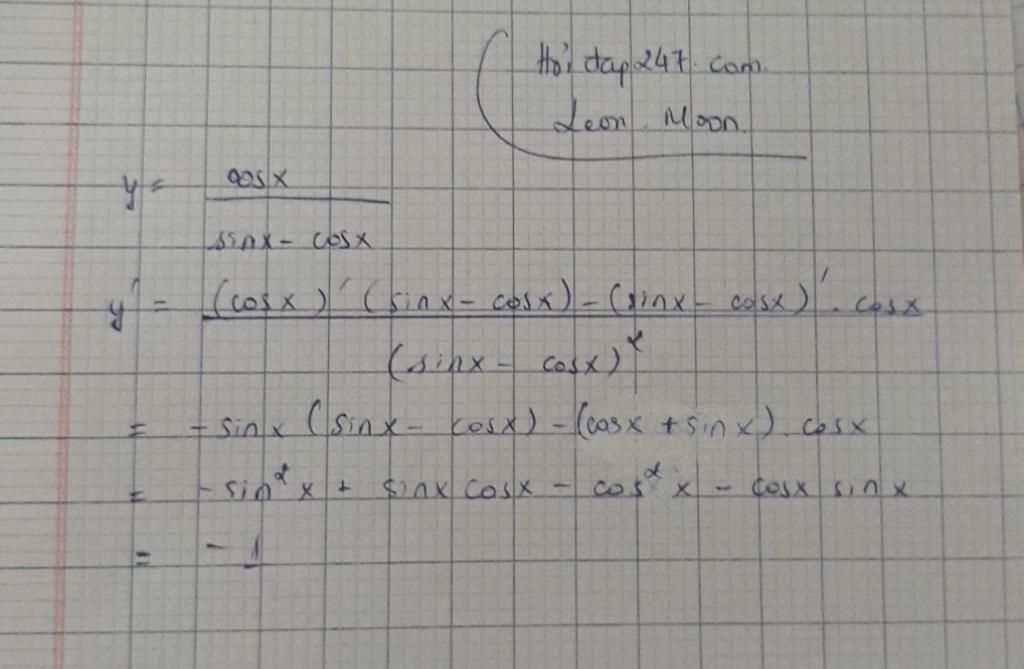 Hỏi đap247.com.
Leon Moon.
y = cosx / sinx - cosx
y' = (cosx)' (sinx - cosx) - (sinx - cosx)' . cosx / (sinx - cosx)²
= -sinx (sinx - cosx) - (cosx + sinx) . cosx
= -sin²x + sinx cosx - cos²x - cosx sinx
= -1